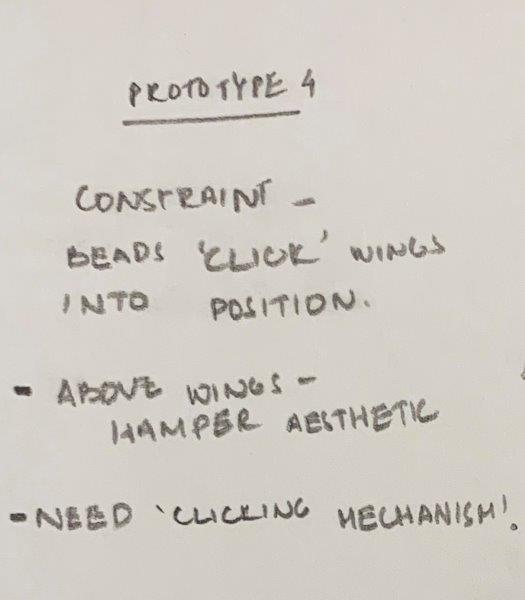 PROTOTYPE 4
CONSTRAINT -
BEADS 'CLICK' WINGS
INTO POSITION.
- ABOVE WINGS -
HAMPER AESTHETIC
- NEED 'CLICKING MECHANISM'.